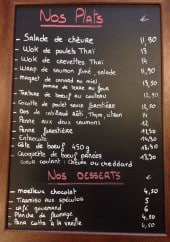 Nos Plats €
- Salade de chèvre 11,90
- Wok de poulet Thaï 13
- Wok de crevettes Thaï 14
- Wrap de saumon fumé, salade 11,90
- Magret de canard au miel
pomme de terre au four
- Tartare de boeuf au couteau
- Cocotte de poulet sauce forestière
- Dos de cabillaud rôti, Thym, citron
- Penne aux deux saumons 12
- Penne forestière
- Entrecôte
- Côte de boeuf 450g
- Croquette de boeuf panées
coeur coulant : chèvre ou cheddar
Nos Desserts €
- moelleux chocolat 4,50
- Tiramisu aux spéculos 5
- café gourmand 6
- Planche de fromage
- Pana cotta à la vanille